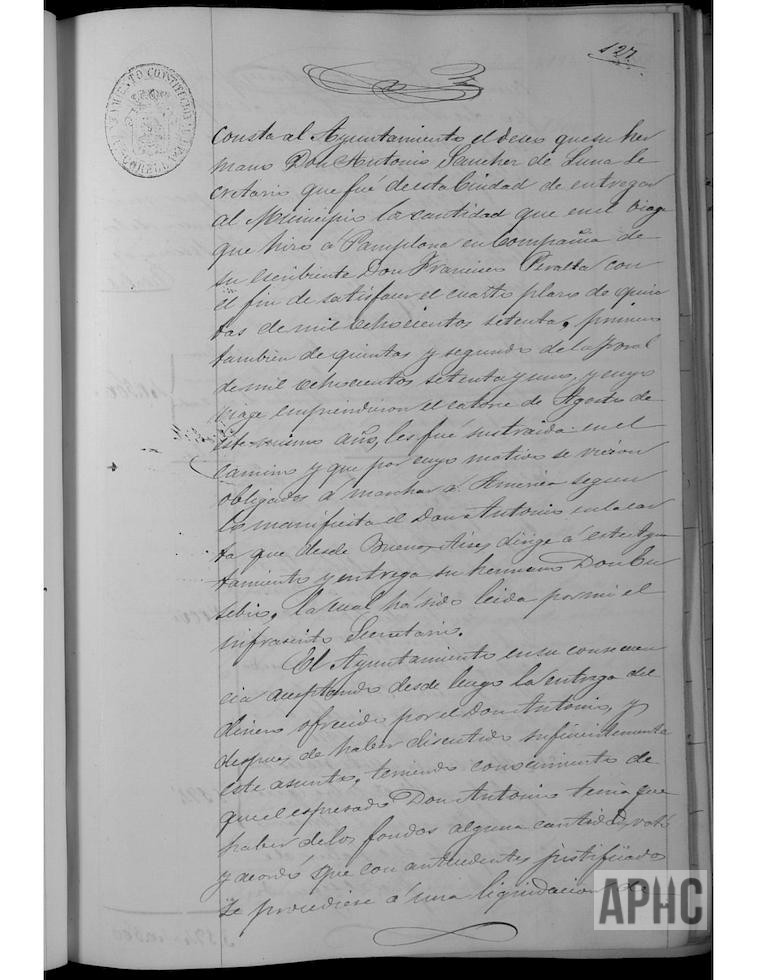 127.
AYUNTAMIENTO CONSTITUCIONAL
CORELLA
consta al Ayuntamiento el deseo que su her
mano Don Antonio Sanchez de Luna Se
cretario que fué de esta Ciudad de entregar
al Municipio la cantidad que en el viage
que hizo á Pamplona en Compañia de
su escribiente Don Francisco Peralta con
el fin de satisfacer el cuarto plazo de quin
tas de mil ochocientos setenta, primero
tambien de quintas y segundo de la foral
de mil ochocientos setenta y uno, y cuyo
viage emprendieron el catorce de Agosto de
este mismo año, les fué sustraida en el
camino y que por cuyo motivo se vieron
obligados á marchar á America segun
lo manifiesta el Don Antonio en la car
ta que desde Buenos Aires dirige á este Ayun
tamiento y entrega su hermano Don Eu
sebio, la cual há sido leida por mi el
infrascrito Secretario.
El Ayuntamiento en su consecuen
cia aceptando desde luego la entrega del
dinero ofrecido por el Don Antonio, y
despues de haber discutido suficientemente
este asunto, teniendo conocimiento de
que el espresado Don Antonio tenia que
haber de los fondos alguna cantidad, votó
y acordó que con antecedentes justificado
se procediese á una liquidacion de
APHC